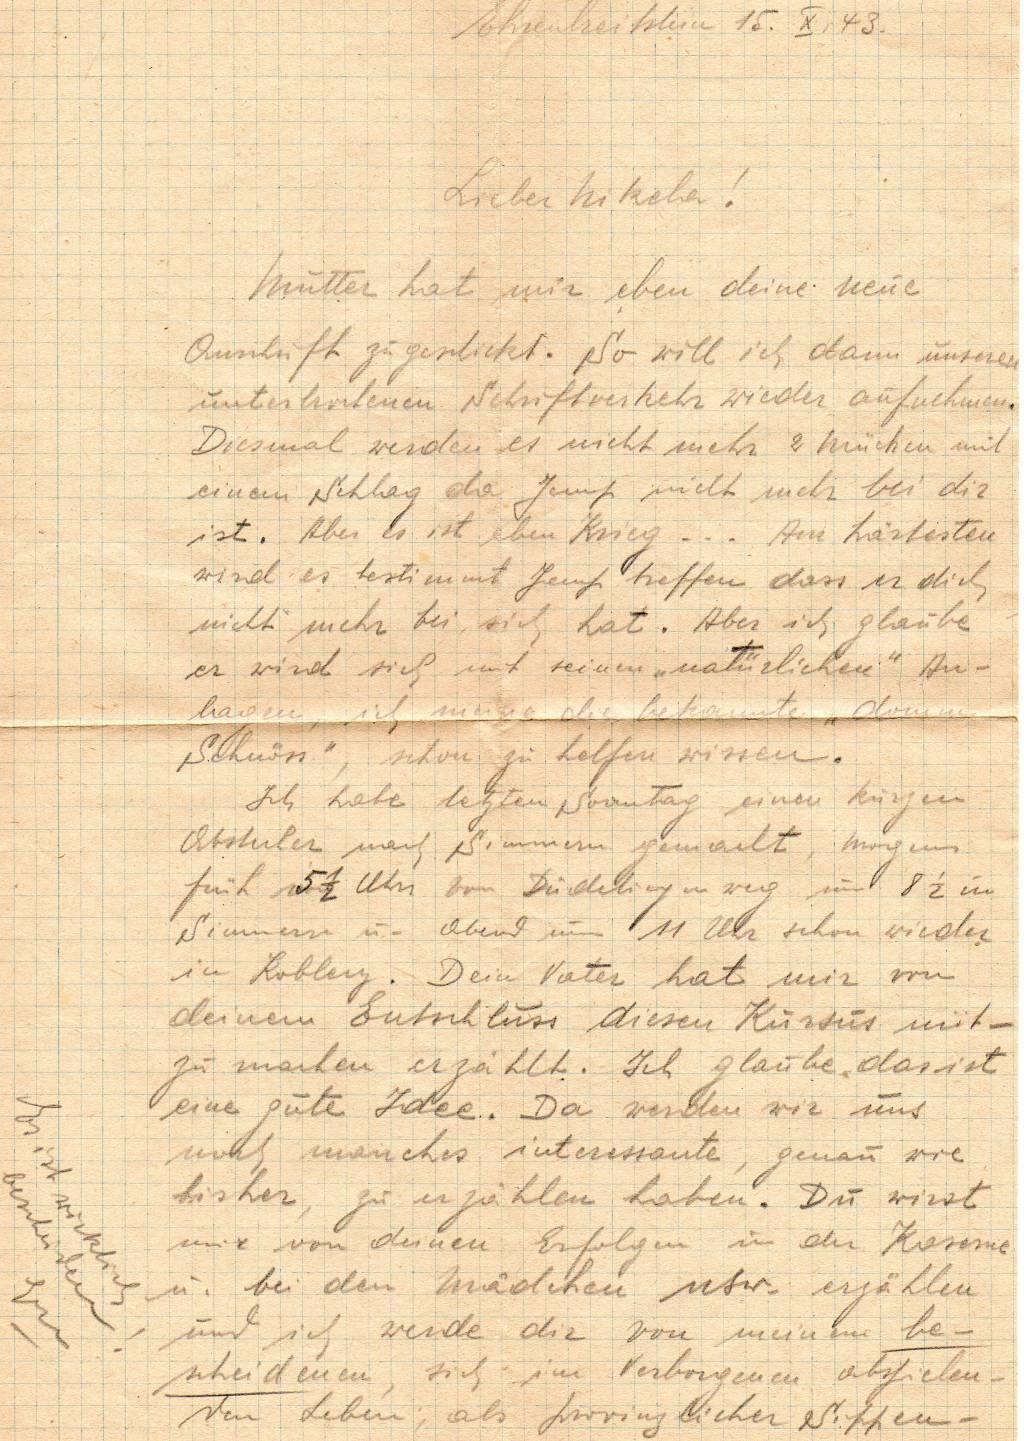 Ehrenbreitstein 15. X. 43.
Lieber !
Mutter hat mir eben deine neue
Anschrift zugeschickt. So will ich dann unseren
unterbrochenen Schriftverkehr wieder aufnehmen.
Diesmal werden es nicht mehr 2 Mücken mit
einem Schlag da Jemp nicht mehr bei dir
ist. Aber es ist eben Krieg ... Am härtesten
wird es bestimmt Jemp treffen dass er dich
nicht mehr bei sich hat. Aber ich glaube
er wird sich mit seinen „natürlichen“ An-
lagen, ich meine die bekannte „domm
Schnöss“, schon zu helfen wissen.
Ich habe letzten Sonntag einen kurzen
Abstecher nach Simmern gemacht, morgens
früh 5½ Uhr von Düdelingen weg um 8½ in
Simmern u. abend um 11 Uhr schon wieder
in Koblenz. Dein Vater hat mir von
deinem Entschluss diesen Kursus mit-
zu machen erzählt. Ich glaube das ist
eine gute Idee. Da werden wir uns
noch manches interessante, genau wie
bisher, zu erzählen haben. Du wirst
mir von deinen Erfolgen in der Kaserne
u. bei den Mädchen usw. erzählen
und ich werde dir von meinem be-
scheidenen, sich im Verborgenen abspielen-
den Leben, als provinzlicher Sippen-
Es ist wirklich
bescheiden!